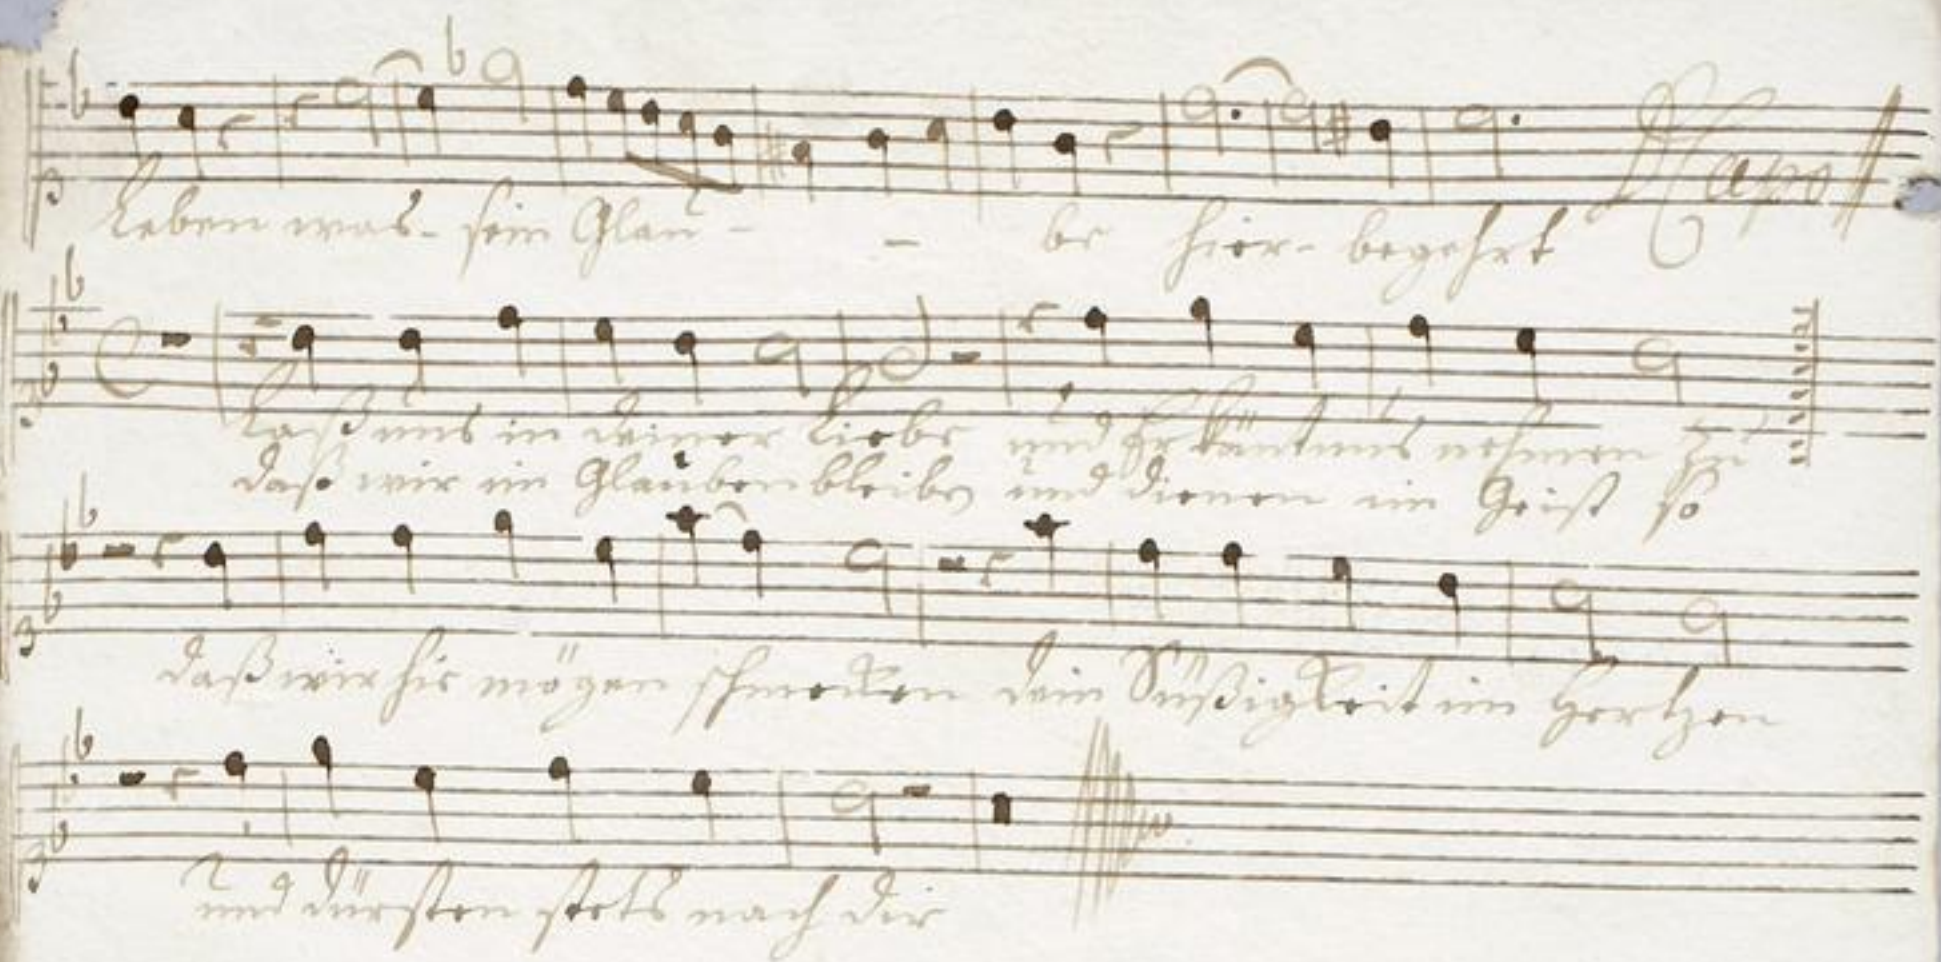 Leben was- sein Glau - - be hier- begehrt Capo
Laß uns in deiner Liebe und Erkäntnüs nehmen zu
daß wir im Glauben bleiben und dienen im Geist so
daß wir hie mögen schmecken dein Süßigkeit im Hertzen
und dürsten stets nach dir